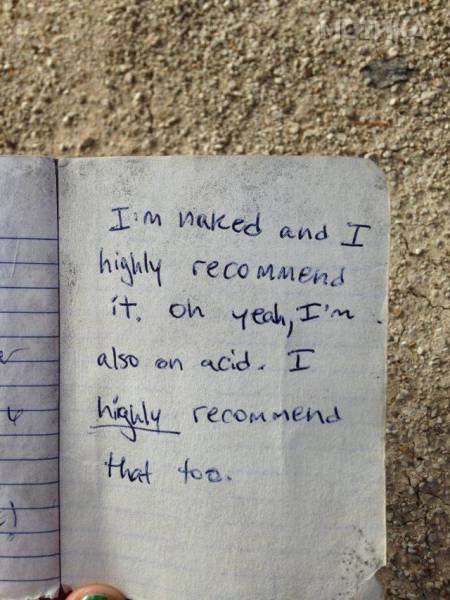 МОТИКА
I'm naked and I
highly recommend
it. oh yeah, I'm
also on acid. I
highly recommend
that too.